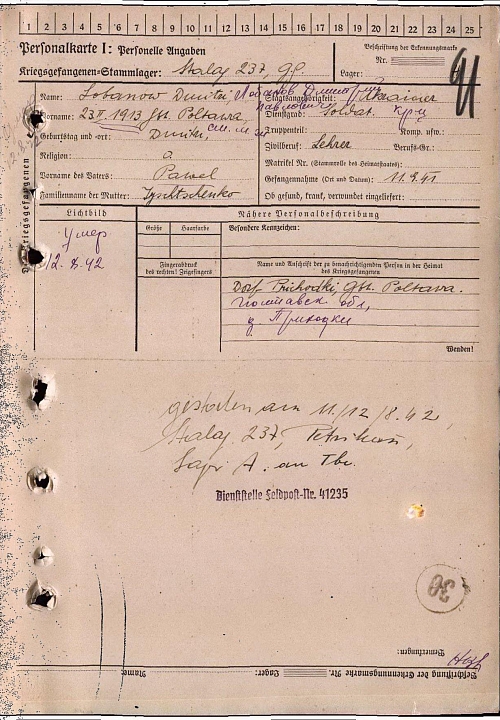 1 2 3 4 5 6 7 8 9 10 11 12 13 14 15 16 17 18 19 20 21 22 23 24 25
Personalkarte I: Personelle Angaben
Beschriftung der Erkennungsmarke
Nr.
Kriegsgefangenen-Stammlager: Stalag 237,
Lager:
Name: Lobanow Dmitri Лобанов Дмитрий
Staatsangehörigkeit: Ukrainer
Vorname: 23.II.1913 Gbt. Poltawa,
Dienstgrad: Soldat.
Geburtstag und -ort: Dmitri,
Truppenteil: Komp. usw.:
Religion:
Zivilberuf: Lehrer Berufs-Gr.:
Vorname des Vaters: Pawel
Matrikel Nr. (Stammrolle des Heimatstaates):
Gefangennahme (Ort und Datum): 11.9.41
Familienname der Mutter:
Ob gesund, krank, verwundet eingeliefert:
Des Kriegsgefangenen
Lichtbild
Nähere Personalbeschreibung
Größe Haarfarbe Besondere Kennzeichen:
умер
12.8.42
Fingerabdruck
des rechten! Zeigefingers
Name und Anschrift der zu benachrichtigenden Person in der Heimat
des Kriegsgefangenen
Dorf Prichodki, Gbt. Poltawa.
Полтавск обл,
д Приходки
Wenden!
gestorben am 11/12/8.42,
Stalag 237,
an Tbc.
Dienststelle Feldpost-Nr. 41235
30
Bemerkungen:
Beschriftung der Erkennungsmarke Nr. Lager: Name: